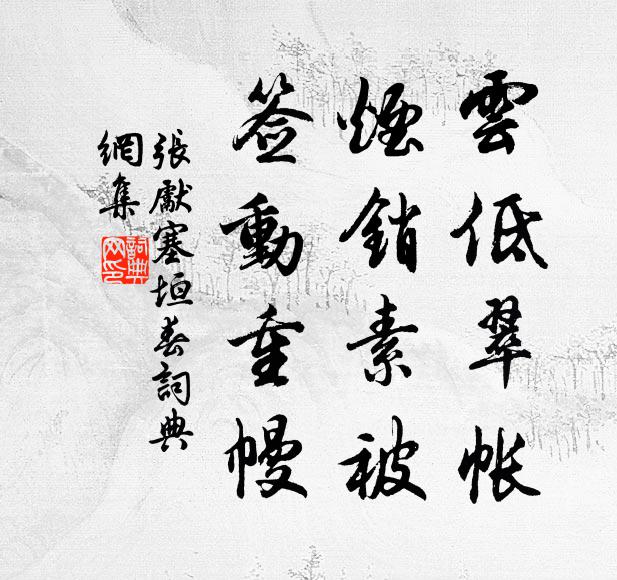 雲低翠帐
煙銷素被
签動重幔
張獻塞垣春詞典
網集
詞典
网印